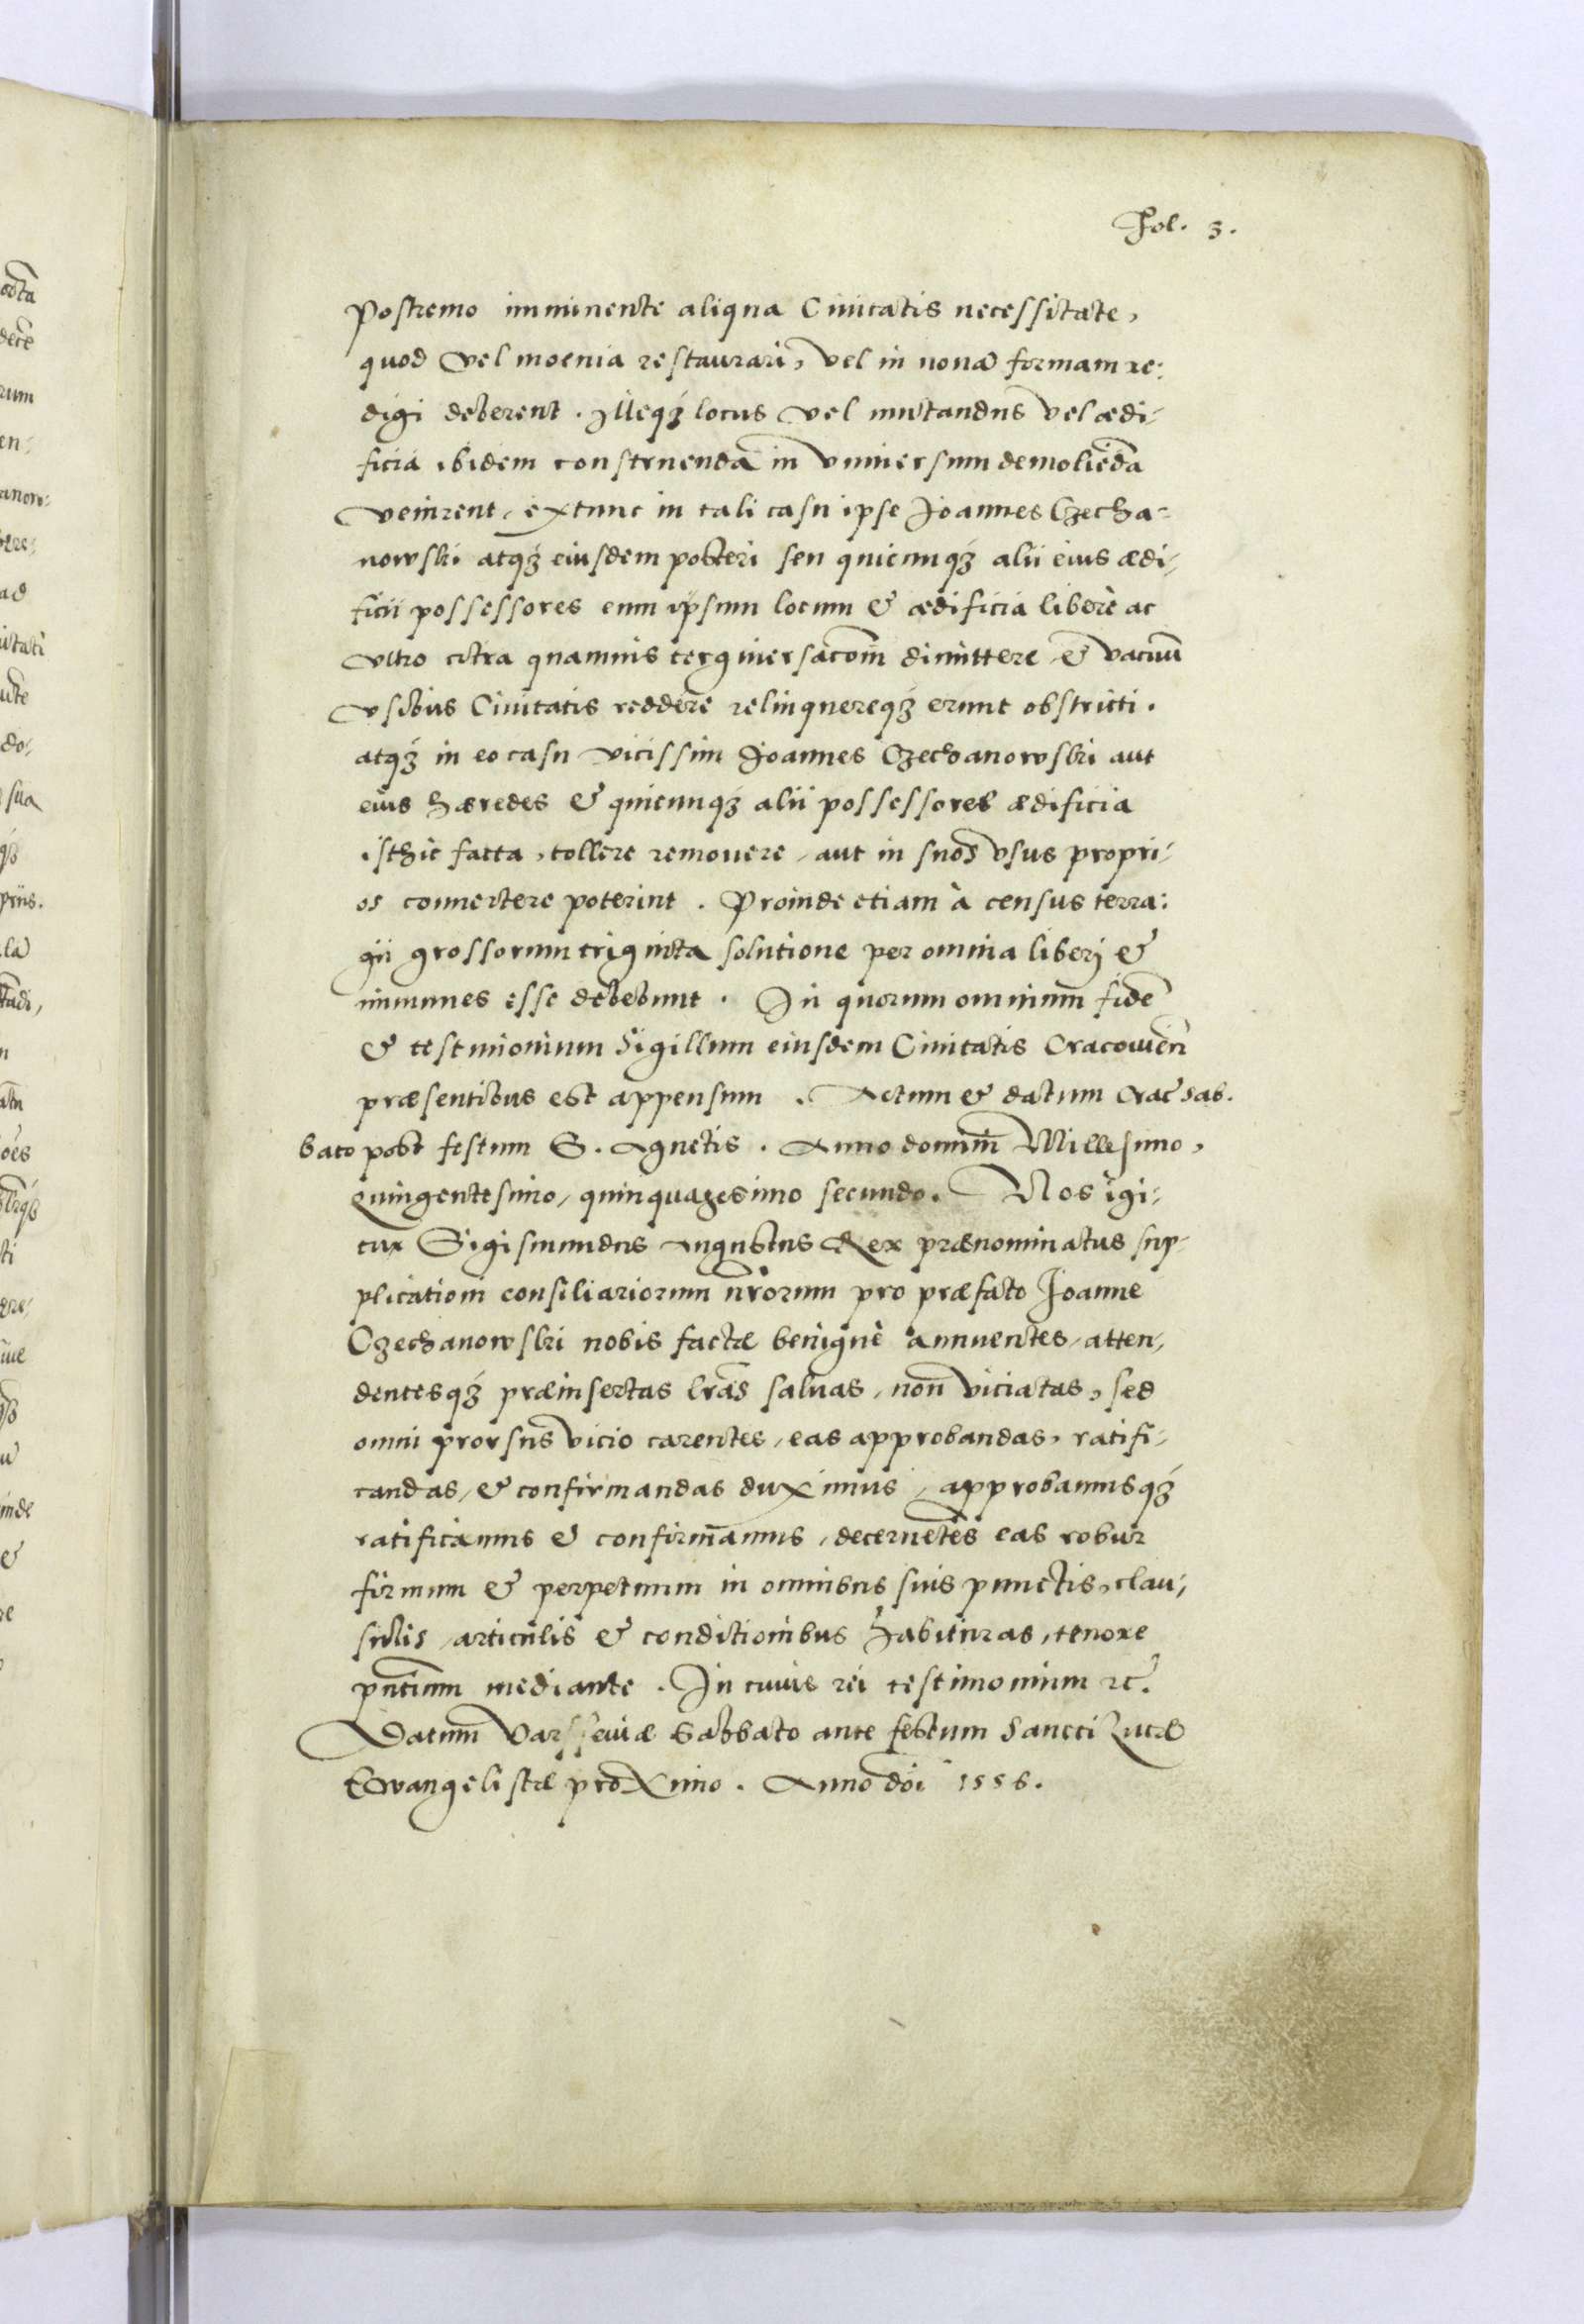 Fol. 3.
Postremo imminente aliqua Ciuitatis necessitate,
quod vel moenia restaurari, vel in nouã formam re:
digi deberent. Illeq₃ locus vel mutandus vel ædi-
ficia ibidem construenda in vniuersum demoliẽda
venirent, extunc in tali casu ipse Joannes Czecha-
nowski atq₃ eiusdem posteri seu quicunq₃ alii eius ædi-
ficii possessores eum ipsum locum & ædificia liberè ac
vltro citra quamuis tergiuersacom̃ dimittere & vacuũ
vsibus Ciuitatis reddere relinquereq₃ erunt obstricti.
atq₃ in eo casu vicissim Joannes Czechanowski aut
eius hæredes & quicunq₃ alii possessores ædificia
isthic facta, tollere remouere, aut in suos vsus propri-
os conuertere poterint. Proinde etiam à census terra:
gii grossorum triginta solutione per omnia liberj &
immunes esse debebunt. In quorum omnium fidẽ
& testimonium Sigillum eiusdem Ciuitatis Cracouieñ
præsentibus est appensum. Actum & datum Crac̃ sab.
bato post festum S. Agnetis. Anno dominj Millesimo,
quingentesimo, quinquagesimo secundo. Nos igi-
tur Sigismundus Augustus Rex prænominatus sup-
plicationi consiliariorum nr̃orum pro præfato Joanne
Czechanowski nobis factæ benignè annuentes, atten-
dentesq₃ præinsertas lr̃as saluas, non viciatas, sed
omni prorsus vicio carentes, eas approbandas, ratifi-
candas, & confirmandas duximus, approbamusq₃
ratificamus & confirmamus, decernẽtes eas robur
firmum & perpetuum in omnibus suis punctis, clau-
sulis, articulis & conditionibus habituras, tenore
pñtium mediante. In cuius rei testimonium ⁊c̃.
Datum Varsseuiæ Sabbato ante festum Sancti Lucæ
Ewangelistæ proximo. Anno dñi 1556.